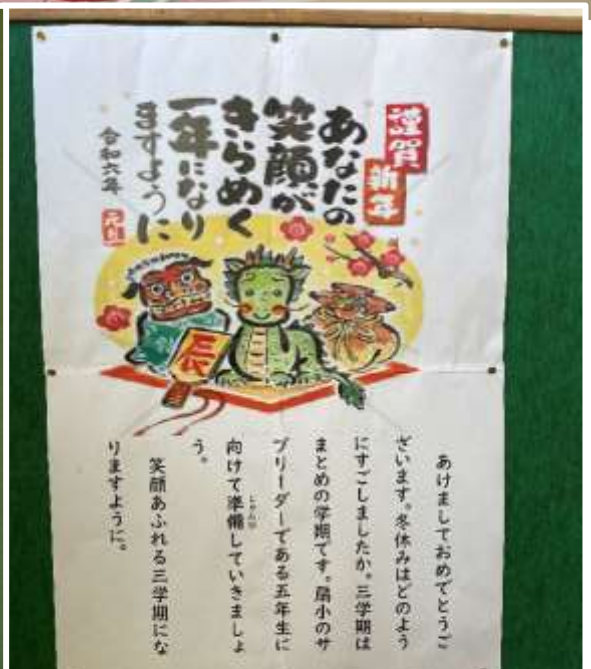 謹賀
新年
あなたの
笑顔が
きらめく
一年になり
ますように
令和六年
元旦
辰
あけましておめでとうご
ざいます。冬休みはどのよう
にすごしましたか。三学期は
まとめの学期です。扇小のサ
ブリーダーである五年生に
向けて準備していきましょ
じゅんび
う。
笑顔あふれる三学期にな
りますように。